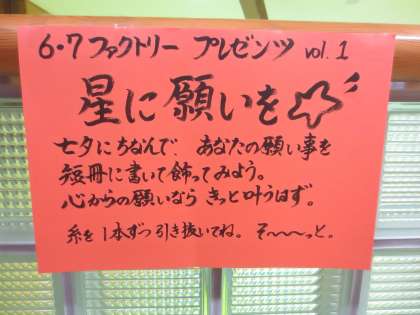 6・7ファクトリー プレゼンツ vol.1
星に願いを☆
七夕にちなんで、あなたの願い事を
短冊に書いて飾ってみよう。
心からの願いなら きっと叶うはず。
糸を1本ずつ引き抜いてね。そ〜〜〜っと。